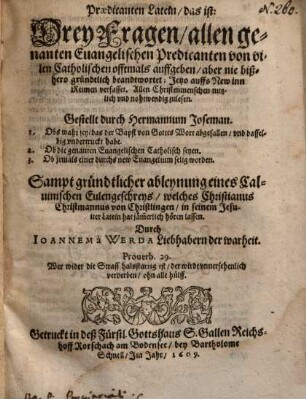 N. 260.
Prædicanten Latein / das ist:
Drey Fragen / allen ge-
nanten Euangelischen Predicanten von vi-
len Catholischen offtmals auffgeben / aber nie biß-
hero gründtlich beandtwortet: Jetzo auffs New inn
Reimen verfasset. Allen Christenmenschen nutz-
lich vnd nohtwendig zulesen.
Gestellt durch Hermannum Joseman.
1. Obs wahr sey / das der Bapst von Gottes Wort abgefallen / vnd dassel-
big vndertruckt habe.
2. Ob die genanten Euangelischen Catholisch seyen.
3. Ob jemals einer durchs new Euangelium selig worden.
Sampt gründtlicher ableynung eines Cal-
uinischen Eulengeschreys / welches Christianus
Christmannus von Christlingen / in seinem Jesu-
iter Latein hat jämerlich hören lassen.
Durch
IOANNEM à WERDA Liebhabern der warheit.
Prouerb. 29.
Wer wider die Straff halßstarrig ist / der wirdt vnuersehenlich
verderben / ohn alle hülff.
Getruckt in deß Fürstl. Gottshauß S. Gallen Reichs-
hoff Rorschach am Bodensee / bey Bartholome
Schnell / Im Jahr / 1609.